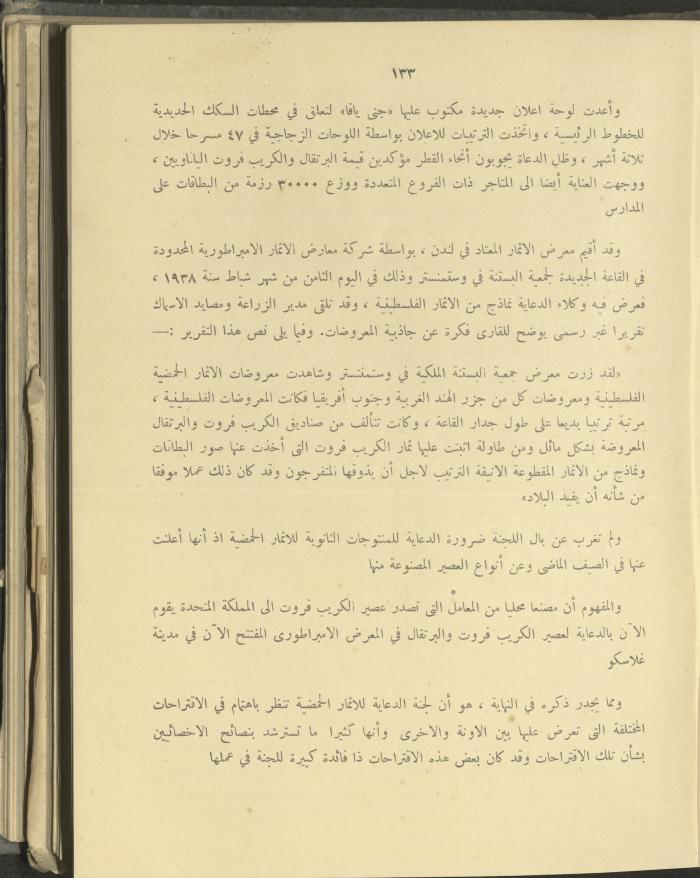 ١٣٣
وأعدت لوحة اعلان جديدة مكتوب عليها «جنى يافا» لتعلق في محطات السكك الحديدية
للخطوط الرئيسية ، واتخذت الترتيبات للاعلان بواسطة اللوحات الزجاجية في ٤٧ مسرحا خلال
ثلاثة أشهر ، وظل الدعاة يجوبون أنحاء القطر مؤكدين قيمة البرتقال والكريب فروت اليافاويين ،
ووجهت العناية أيضا الى المتاجر ذات الفروع المتعددة ووزع ٣٠٠٠٠ رزمة من البطاقات على
المدارس
وقد أقيم معرض الاثمار المعتاد في لندن ، بواسطة شركة معارض الاثمار الامبراطورية المحدودة
في القاعة الجديدة لجمعية البستنة في وستمنستر وذلك في اليوم الثامن من شهر شباط سنة ١٩٣٨ ،
فعرض فيه وكلاء الدعاية نماذج من الاثمار الفلسطينية ، وقد تلقى مدير الزراعة ومصايد الاسماك
تقريرا غير رسمى يوضح للقارى فكرة عن جاذبية المعروضات. وفيما يلى نص هذا التقرير :—
«لقد زرت معرض جمعية البستنة الملكية في وستمنستر وشاهدت معروضات الاثمار الحمضية
الفلسطينية ومعروضات كل من جزر الهند الغربية وجنوب أفريقيا فكانت المعروضات الفلسطينية ،
مرتبة ترتيبا بديعا على طول جدار القاعة ، وكانت تتألف من صناديق الكريب فروت والبرتقال
المعروضة بشكل مائل ومن طاولة اثبتت عليها ثمار الكريب فروت التى أخذت عنها صور البطاقات
ونماذج من الاثمار المقطوعة الانيقة الترتيب لاجل أن يذوقها المتفرجون وقد كان ذلك عملا موفقا
من شأنه أن يفيد البلاد»
ولم تغرب عن بال اللجنة ضرورة الدعاية للمنتوجات الثانوية للاثمار الحمضية اذ أنها أعلنت
عنها في الصيف الماضى وعن أنواع العصير المصنوعة منها
والمفهوم أن مصنعا محليا من المعامل التى تصدر عصير الكريب فروت الى المملكة المتحدة يقوم
الآن بالدعاية لعصير الكريب فروت والبرتقال في المعرض الامبراطورى المفتتح الآن في مدينة
غلاسكو
ومما يجدر ذكره في النهاية ، هو أن لجنة الدعاية للاثمار الحمضية تنظر باهتمام في الاقتراحات
المختلفة التى تعرض عليها بين الاونة والاخرى وأنها كثيرا ما تسترشد بنصائح الاخصائيين
بشأن تلك الاقتراحات وقد كان بعض هذه الاقتراحات ذا فائدة كبيرة للجنة في عملها